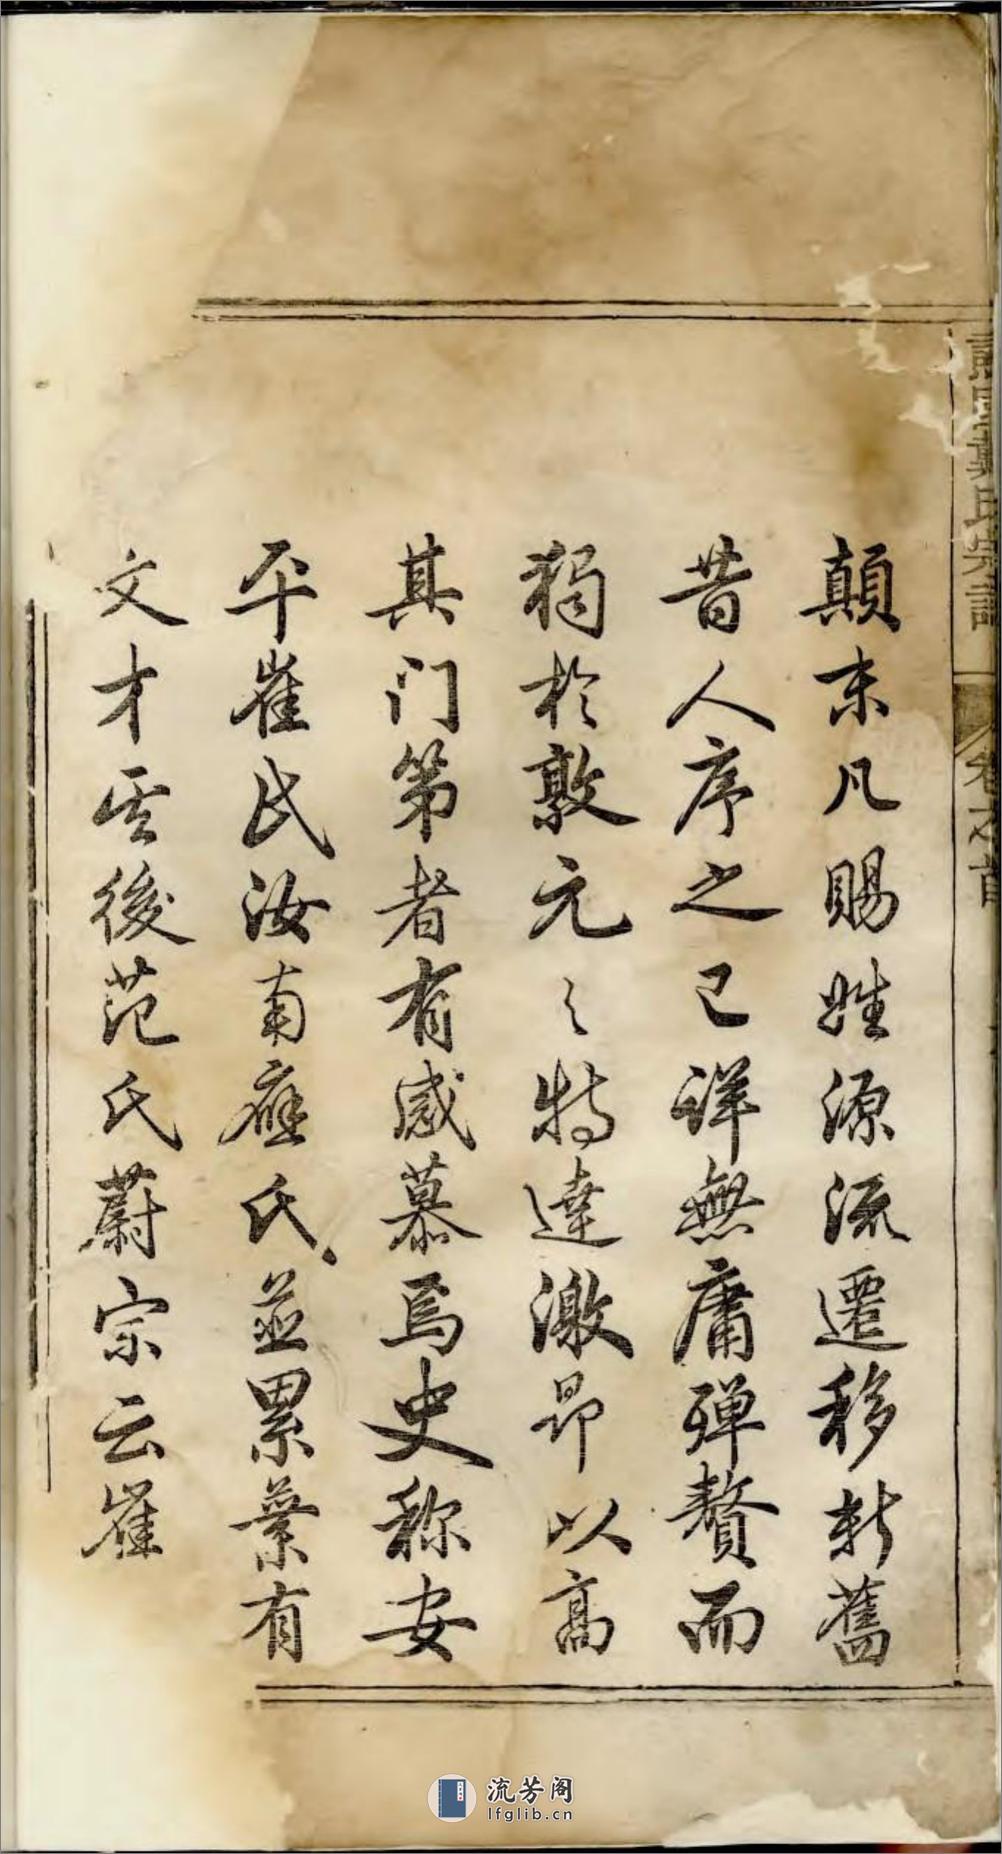 顛末凡賜姓源流遷移新舊
昔人序之已詳無庸殫贅而
獨於敦元之特達激昂以高
其门第者有感慕焉史称安
平崔氏汝南應氏並累葉有
文才至後范氏蔚宗云崔
氏宗譜
卷之首
流芳阁
lfglib.cn